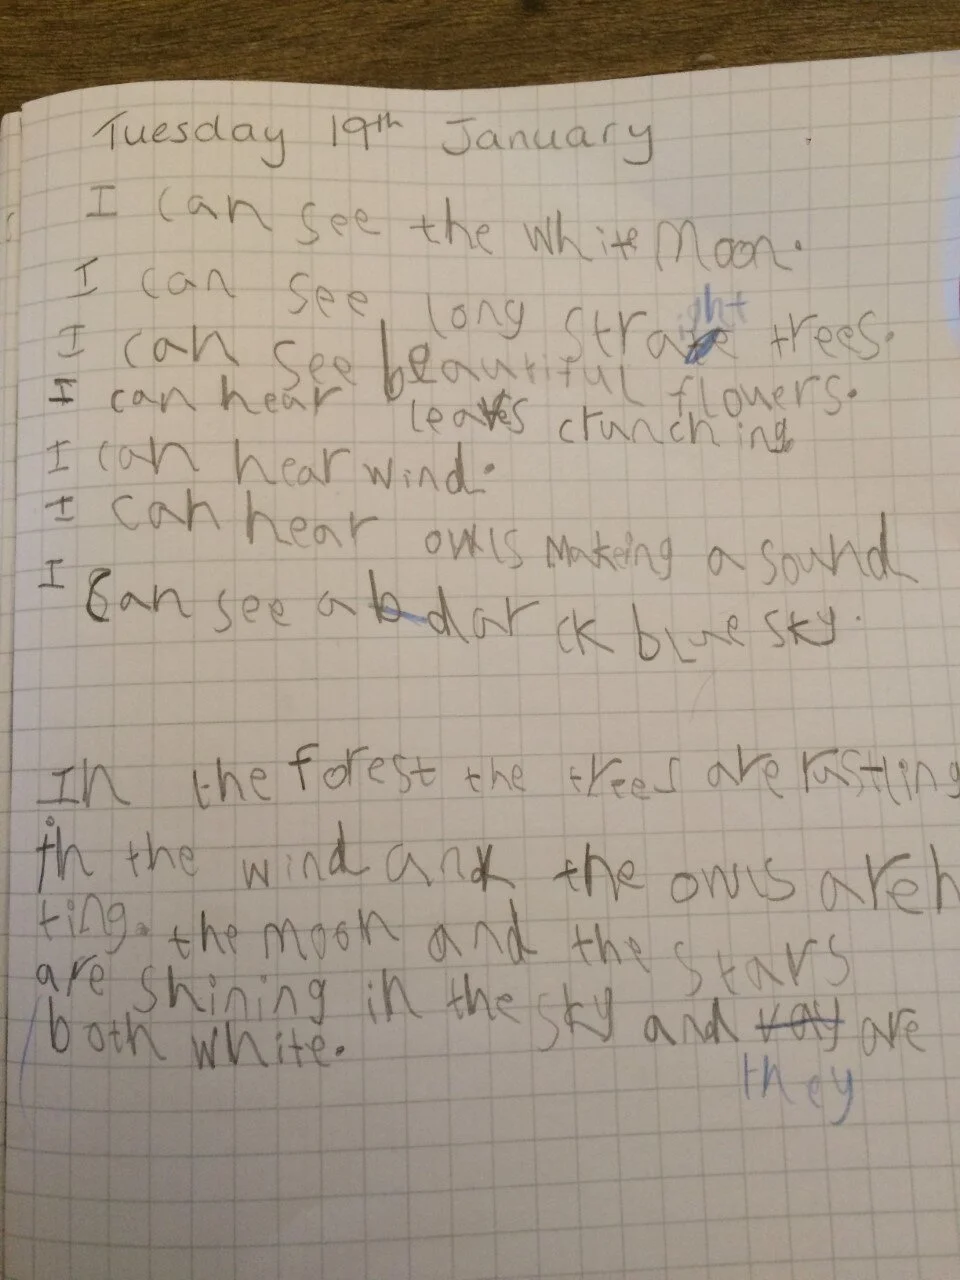 Tuesday 19th January
I can see the white Moon.
I can see long straight trees.
I can see beautiful flowers.
I can hear leaves crunching
I can hear wind.
I can hear owls makeing a sound
I can see a b darck blue sky.
In the forest the trees are rustling
in the wind and the owls are h
ting. the moon and the stars
are shining in the sky and vay are
they
both white.